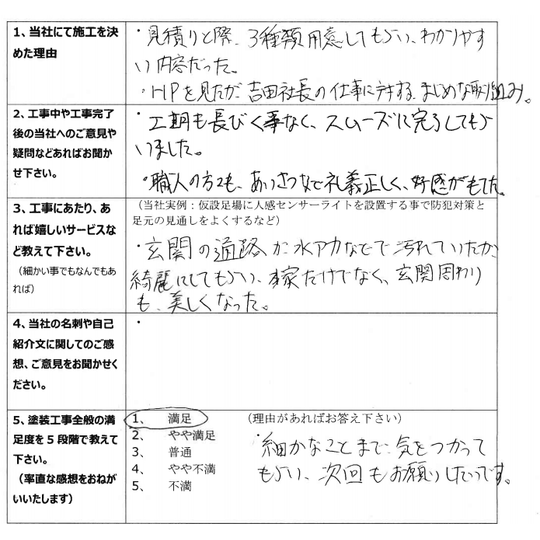 1、当社にて施工を決めた理由
・見積りの際、3種類用意してもらい、わかりやすい内容だった。
・HPを見たが吉田社長の仕事に対する、まじめな取り組み。
2、工事中や工事完了後の当社へのご意見や疑問などあればお聞かせ下さい。
・工期も長びく事なく、スムーズに完了してもらいました。
・職人の方々も、あいさつなど礼義正しく、好感がもてた。
3、工事にあたり、あれば嬉しいサービスなど教えて下さい。
（細かい事でもなんでもあれば）
（当社実例：仮設足場に人感センサーライトを設置する事で防犯対策と
足元の見通しをよくするなど）
・玄関の通路が水アカなどで汚れていたが、
綺麗にしてもらい、家だけでなく、玄関周わり
も、美しくなった。
4、当社の名刺や自己紹介文に関してのご感想、ご意見をお聞かせください。
・
5、塗装工事全般の満足度を5段階で教えて下さい。
（率直な感想をおねがいいたします）
1、 満足 （理由があればお答え下さい）
2、 やや満足
3、 普通
4、 やや不満
5、 不満
・細かなことまで、気をつかって
もらい、次回もお願いしたいです。